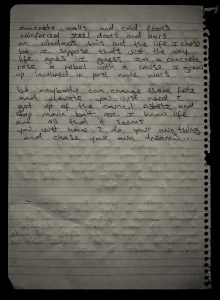 concrete walls and cold floors
reinforced steel doors and bars
on windows this isnt the life I chose
but I suppose thats just the way
life goes I guess Im a concrete
rose a rebel with a cause I grew
up involved in post code wars

but maybe can change there fate
and elevate you just need 2
get up of the council estate and
stop main but I know life
not all that it seems
you just have 2 do your own things
and chase your own dreams...